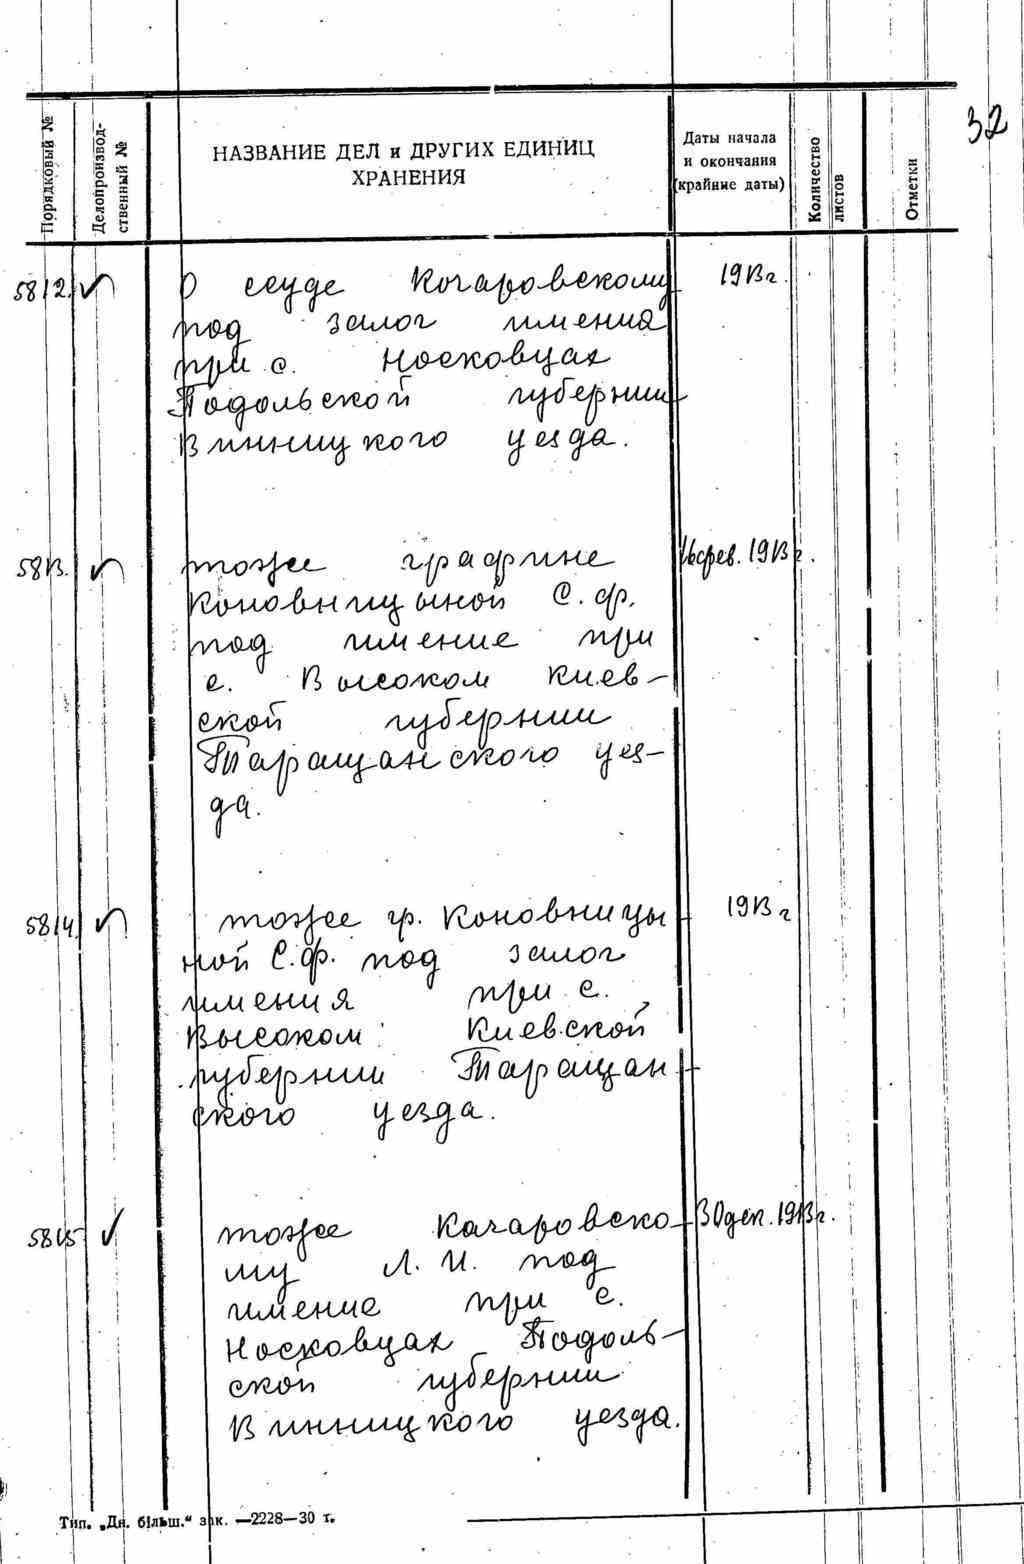 32
Порядковый №
Делопроизвод-
ственный №
НАЗВАНИЕ ДЕЛ и ДРУГИХ ЕДИНИЦ
ХРАНЕНИЯ
Даты начала
и окончания
(крайние даты)
Количество
листов
Отметки
5812. О ссуде Кочаровскому 1913 г.
под залог имения
при с. Носковцах
Подольской губернии
Винницкого уезда.
5813. тоже графине 16 фев. 1913 г.
Коновницыной С. Ф.
под имение при
с. Высоком Киев-
ской губернии
Таращанского уез-
да.
5814. тоже гр. Коновницы- 1913 г
ной С. Ф. под залог
имения при с.
Высоком Киевской
губернии Таращан-
ского уезда.
5815 тоже Качаровско- 30 дек. 1913 г.
му Л. И. под
имение при с.
Носковцах Подоль-
ской губернии
Винницкого уезда.
Тип. „Дн. більш.“ зак. —2228—30 т.